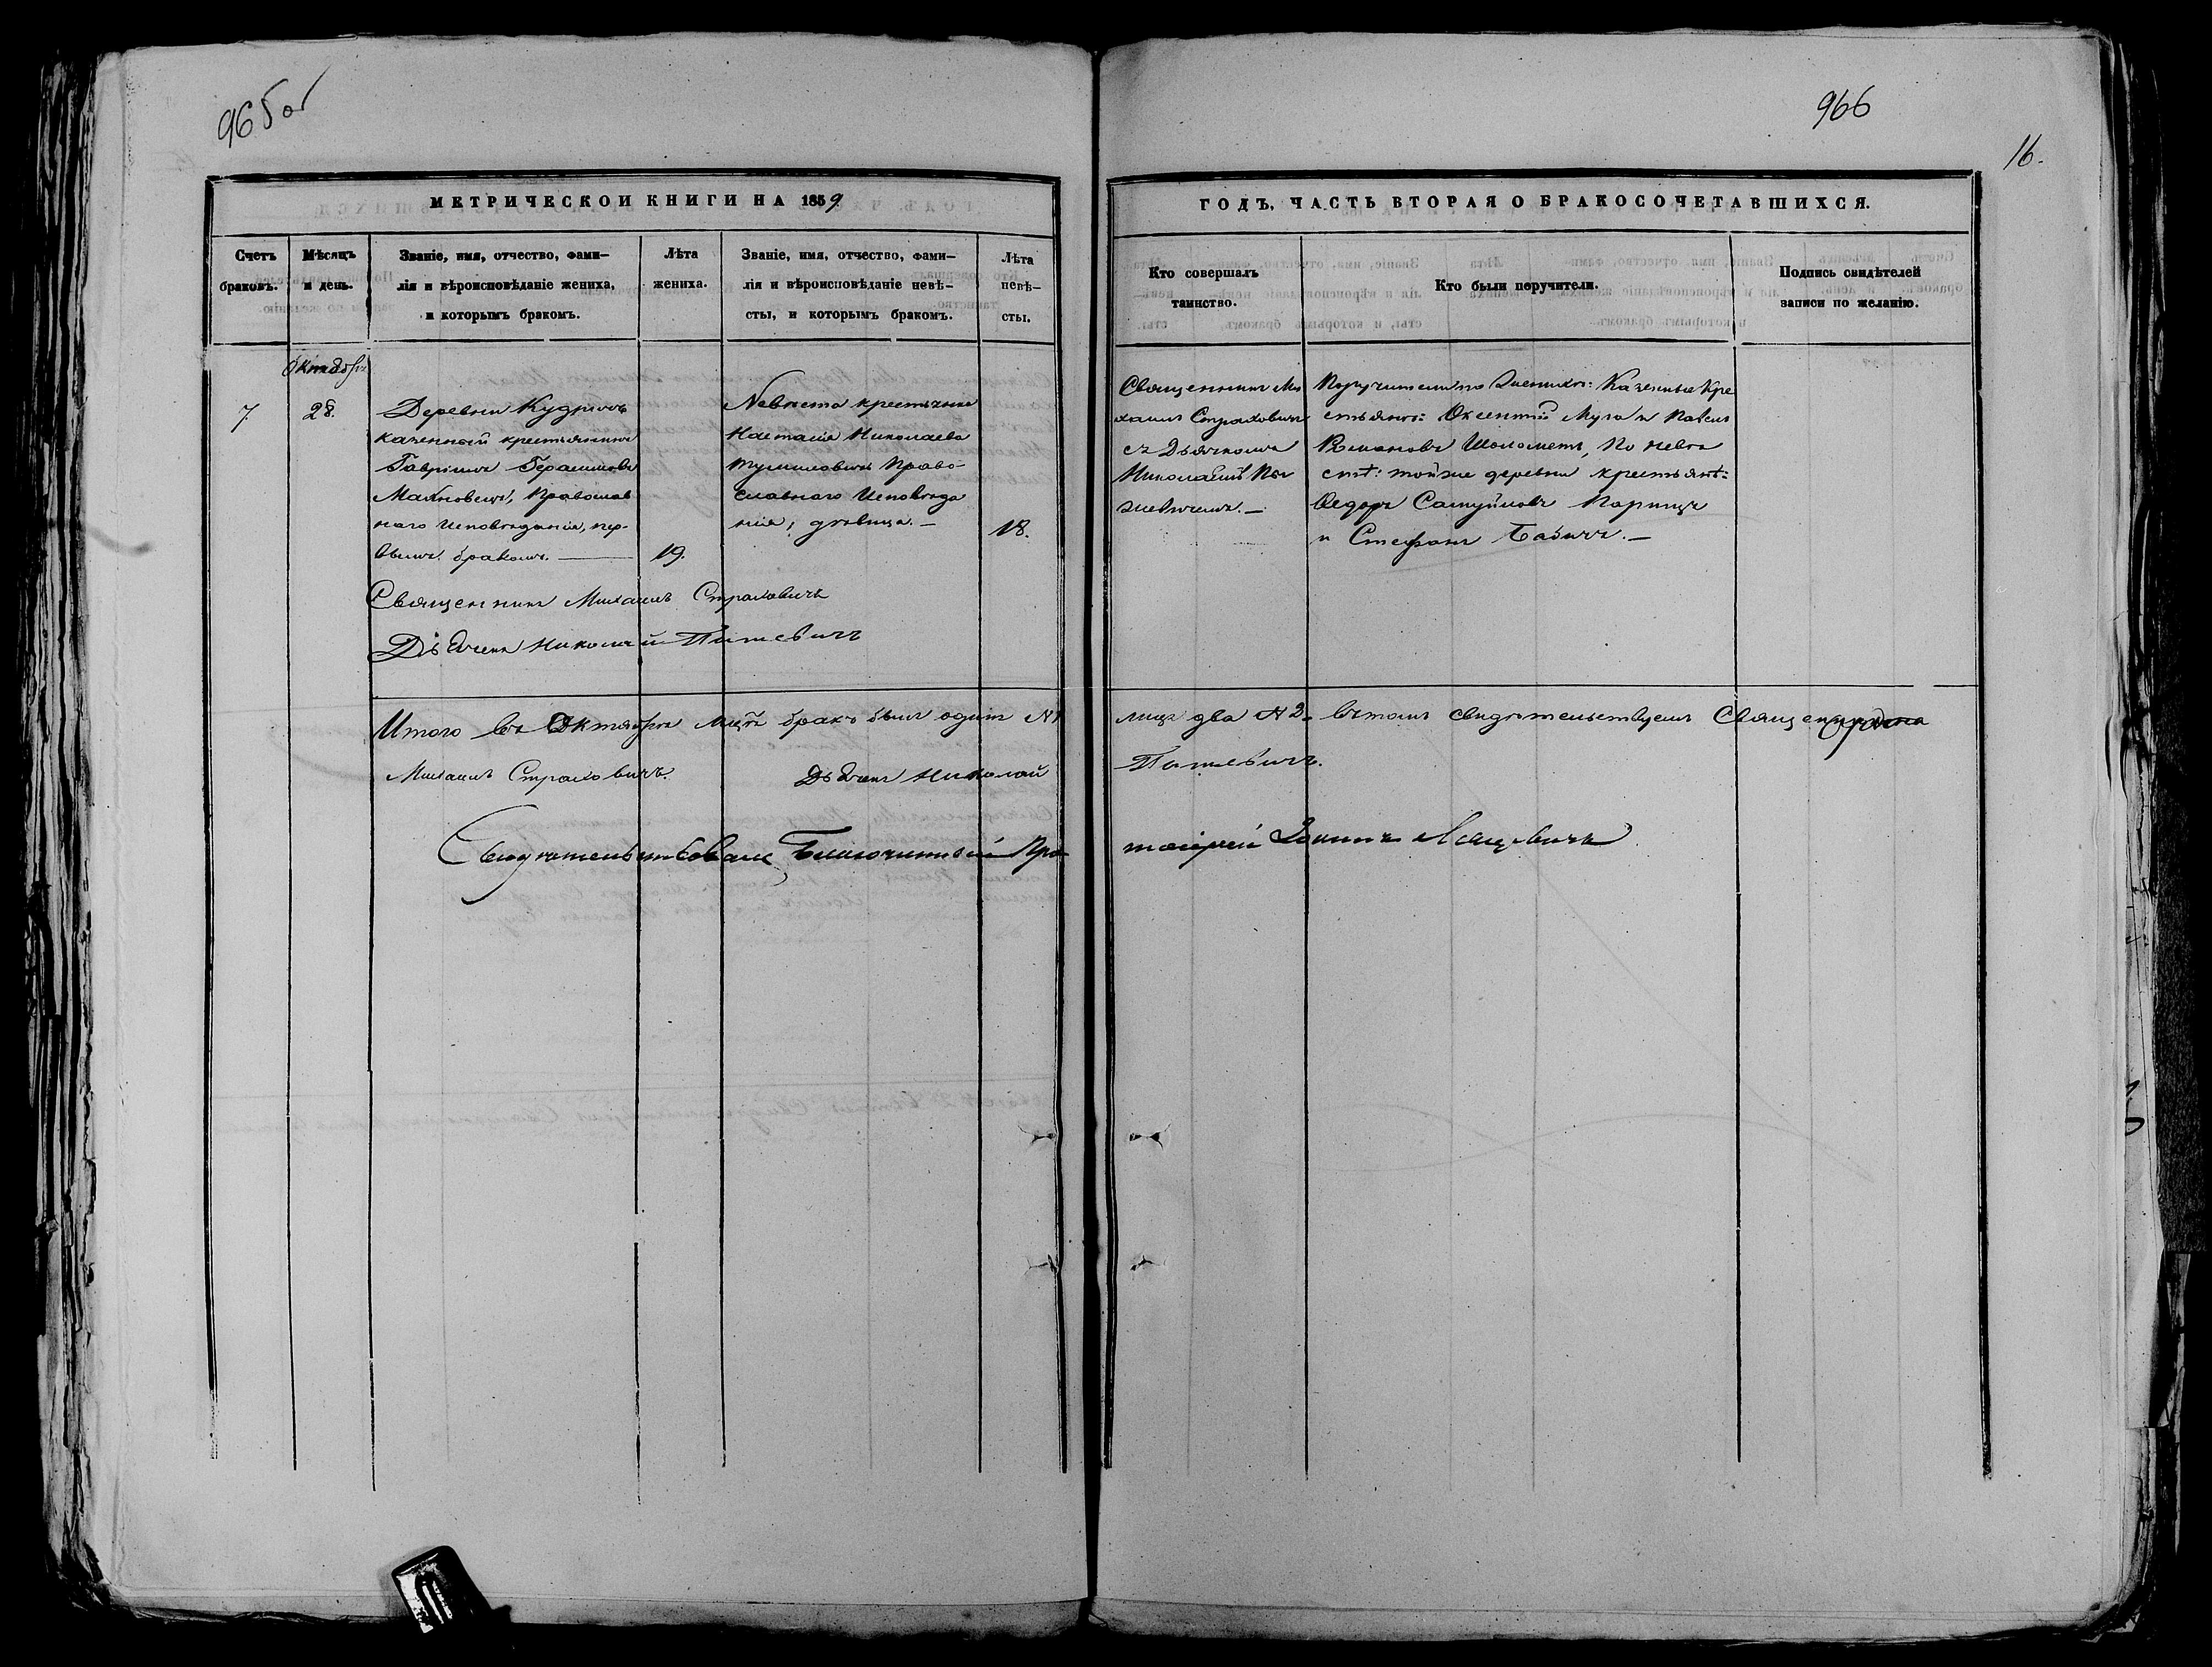 965 об
966
16.
МЕТРИЧЕСКОЙ КНИГИ НА 1859
ГОДЪ, ЧАСТЬ ВТОРАЯ О БРАКОСОЧЕТАВШИХСЯ.
Счетъ браковъ.
Мѣсяцъ и день.
Званіе, имя, отчество, фами-
лія и вѣроисповѣданіе жениха,
и которымъ бракомъ.
Лѣта
жениха.
Званіе, имя, отчество, фами-
лія и вѣроисповѣданіе невѣ-
сты, и которымъ бракомъ.
Лѣта
невѣ-
сты.
Кто совершалъ
таинство.
Кто были поручители.
Подпись свидѣтелей
записи по желанію.
Октября
7.
28.
Деревни Кудричъ
казенный крестьянинъ
Гавріилъ Герасимовъ
православ
наго исповѣданія, пер-
вымъ бракомъ.
19.
Невѣста крестьянка
Настасія Николаева
право-
славнаго исповѣда
нія, дѣвица. —
18.
Священникъ Ми
хаилъ Страховичъ
съ Дьячкомъ
Николаемъ
Поручители по женихѣ: Казенные Кре
стьяне: Оксентій Муха и Павелъ
Романовъ Шоломет, По невѣ
стѣ: тойже деревни крестьянѣ:
Ѳедоръ Самуйловъ
и Стефанъ Бабичъ. —
Священникъ Михаилъ Страховичъ
Дьячекъ Николай
Итого въ Октябрѣ мцѣ бракъ былъ одинъ N 1
лица два N 2. въ томъ свидѣтельствуемъ
Михаилъ Страховичъ.
Дьячекъ Николай
Свидѣтельствовалъ Благочинный Про
тоіерей